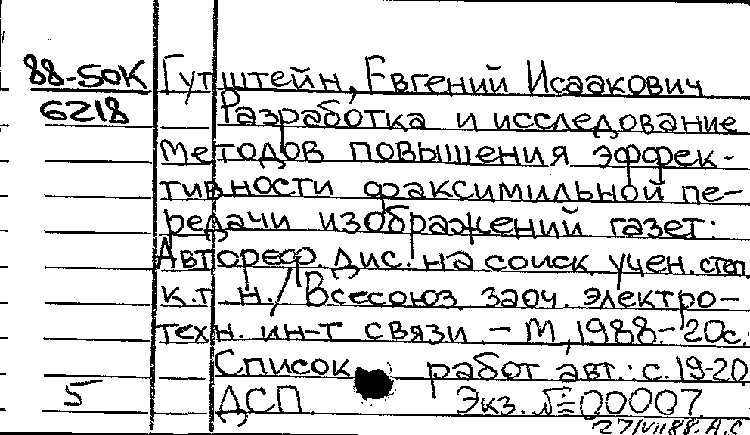 88-50К Гутштейн, Евгений Исаакович
6218 Разработка и исследование
методов повышения эффек-
тивности факсимильной пе-
редачи изображений газет:
Автореф. дис. на соиск. учен. степ.
к.т.н./Всесоюз. заоч. электро-
техн. ин-т связи. - М, 1988.-20с.
Список работ авт.: с.19-20
5 ДСП. Экз. № 00007
27/VII88. А.С